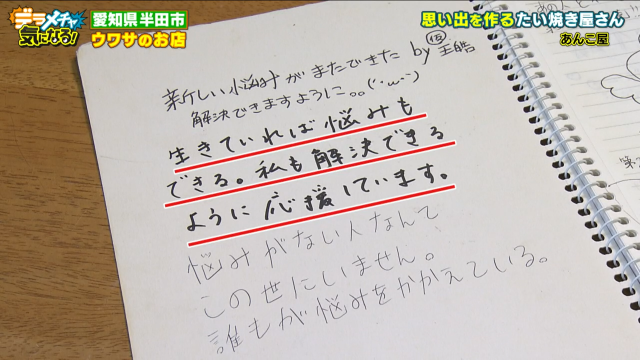 デラメチャ
気になる!
愛知県半田市
ウワサのお店
思い出を作るたい焼き屋さん
あんこ屋
新しい悩みがまたできた by
解決できますように。。(´･ω･`)
生きていれば悩みも
できる。私も解決できる
ように応援しています。
悩みがない人なんて
この世にいません。
誰もが悩みをかかえている。